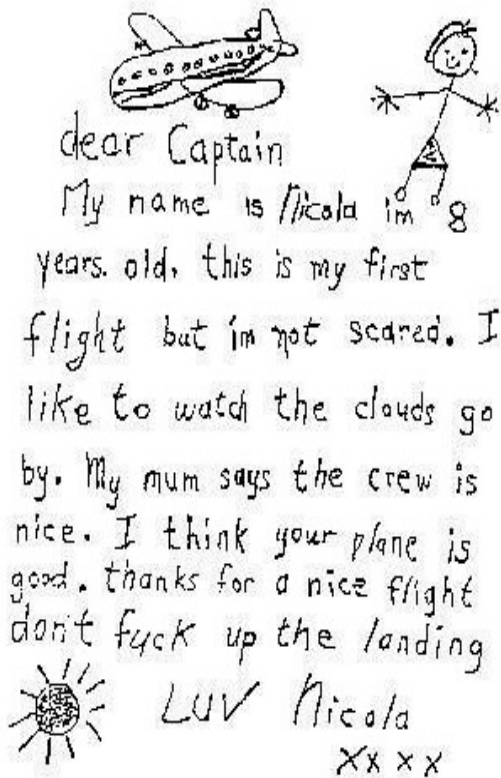 dear Captain
My name is Nicola im 8
years. old, this is my first
flight but im not scared. I
like to watch the clouds go
by. My mum says the crew is
nice. I think your plane is
good. thanks for a nice flight
don't fuck up the landing
LUV Nicola
XXXX